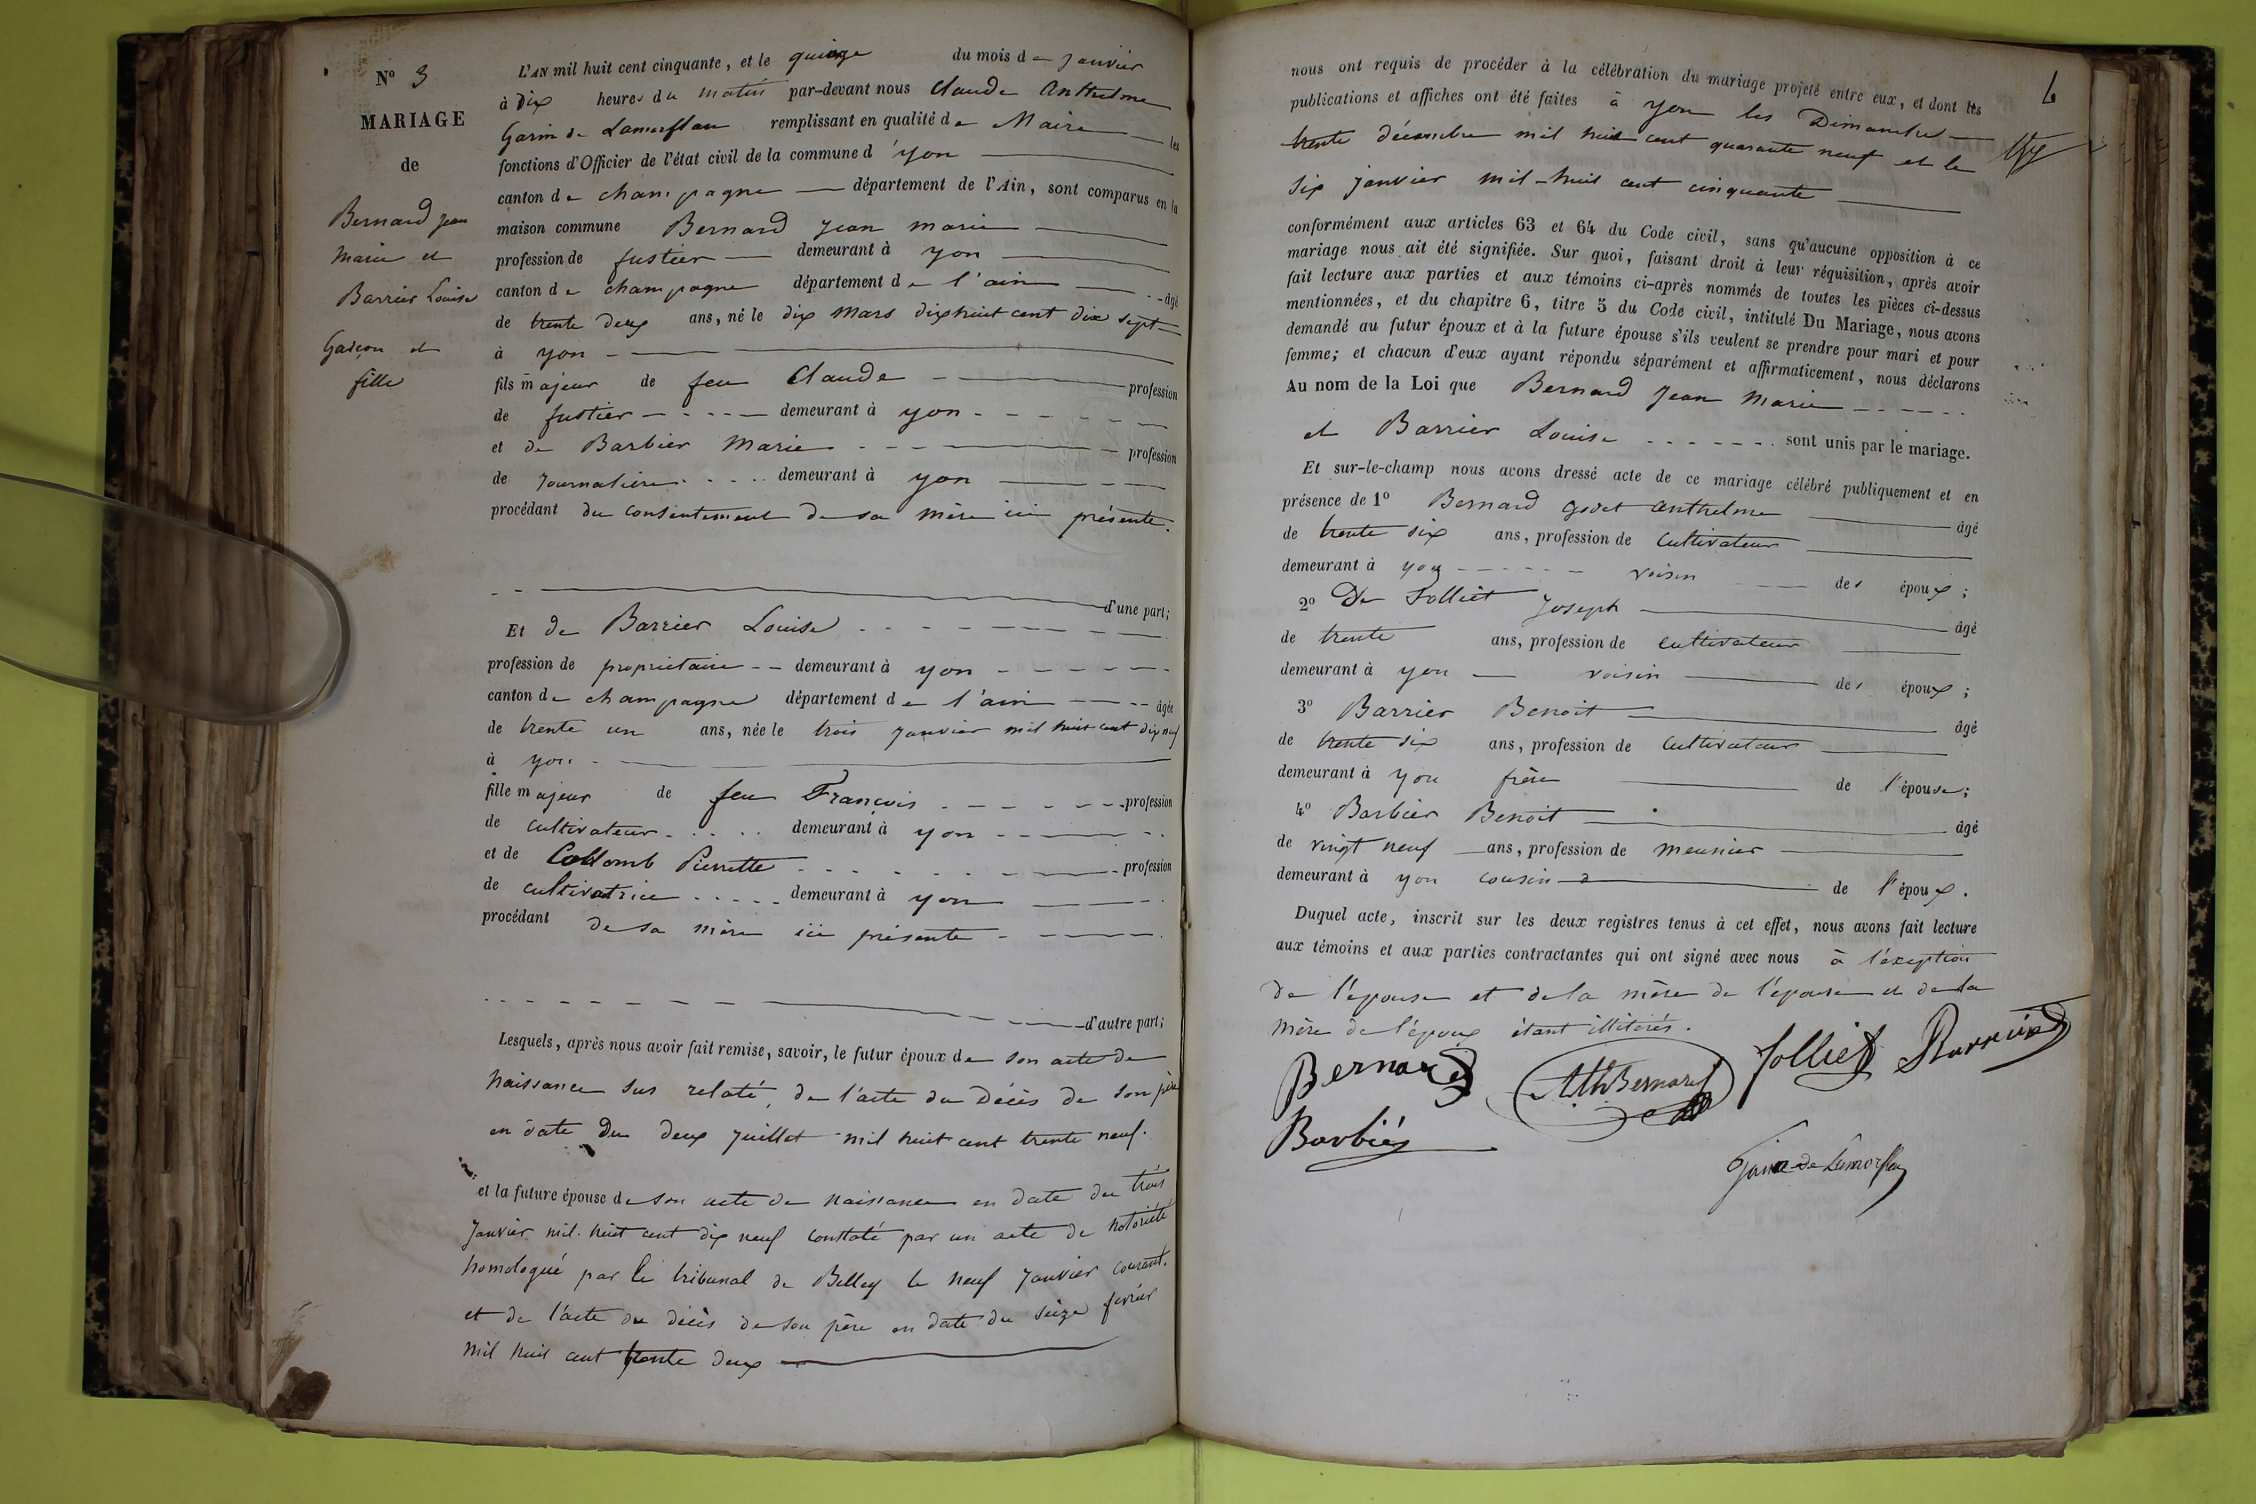 N° 3
MARIAGE
de
Bernard jean
marie et
Barrier Louise
Garçon et
fille
L'AN mil huit cent cinquante, et le quinze du mois de janvier
à dix heures du matin par-devant nous Claude Anthelme
Garin de Lamorflan remplissant en qualité de Maire les
fonctions d'Officier de l'état civil de la commune d'yon
canton de champagne département de l'Ain, sont comparus en la
maison commune Bernard jean marie
profession de fustier demeurant à yon
canton de champagne département de l'ain âgé
de trente deux ans, né le dix mars dixhuit cent dix sept
à yon
fils majeur de feu Claude profession
de fustier demeurant à yon
et de Barbier Marie profession
de journalière demeurant à yon
procédant du consentement de sa mère ici présente.
d'une part;
Et de Barrier Louise
profession de propriétaire demeurant à yon
canton de champagne département de l'ain âgée
de trente un ans, née le trois janvier mil huit cent dix neuf
à yon
fille majeur de feu François profession
de cultivateur demeurant à yon
et de Collomb Pierrette profession
de cultivatrice demeurant à yon
procédant de sa mère ici présente
d'autre part;
Lesquels, après nous avoir fait remise, savoir, le futur époux de son acte de
naissance sus relaté, de l'acte du décès de son père
en date du deux juillet mil huit cent trente neuf.
et la future épouse de son acte de naissance en date du trois
janvier mil huit cent dix neuf constaté par un acte de notoriété
homologué par le tribunal de Belley le neuf janvier courant.
et de l'acte du décès de son père en date du seize fevrier
mil huit cent trente deux
nous ont requis de procéder à la célébration du mariage projeté entre eux, et dont les
publications et affiches ont été faites à yon les Dimanche
trente décembre mil huit cent quarante neuf et le
six janvier mil huit cent cinquante
conformément aux articles 63 et 64 du Code civil, sans qu'aucune opposition à ce
mariage nous ait été signifiée. Sur quoi, faisant droit à leur réquisition, après avoir
fait lecture aux parties et aux témoins ci-après nommés de toutes les pièces ci-dessus
mentionnées, et du chapitre 6, titre 5 du Code civil, intitulé Du Mariage, nous avons
demandé au futur époux et à la future épouse s'ils veulent se prendre pour mari et pour
femme; et chacun d'eux ayant répondu séparément et affirmativement, nous déclarons
Au nom de la Loi que Bernard jean marie
et Barrier Louise sont unis par le mariage.
Et sur-le-champ nous avons dressé acte de ce mariage célébré publiquement et en
présence de 1° Bernard godet anthelme âgé
de trente six ans, profession de cultivateur
demeurant à yon voisin des époux;
2° De Jolliet Joseph âgé
de trente ans, profession de cultivateur
demeurant à yon voisin des époux;
3° Barrier Benoit âgé
de trente six ans, profession de cultivateur
demeurant à yon frère de l'épouse;
4° Barbier Benoit âgé
de vingt neuf ans, profession de meunier
demeurant à yon cousin de l'époux.
Duquel acte, inscrit sur les deux registres tenus à cet effet, nous avons fait lecture
aux témoins et aux parties contractantes qui ont signé avec nous à l'exeption
de l'épouse et de la mère de l'épouse et de la
mère de l'époux étant illitérés.
Bernard Ath Bernard Jolliet Barrier
Barbier
Garin de Lamorflan